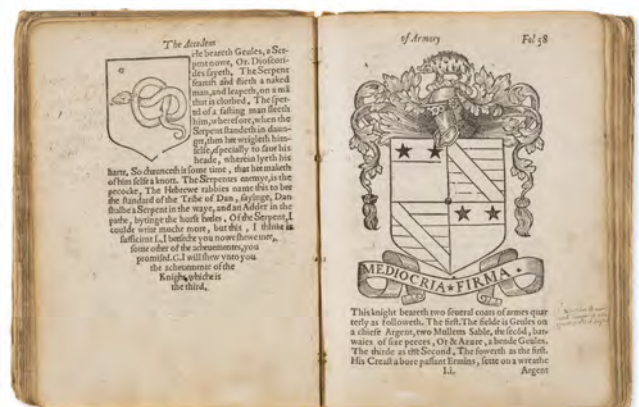 The Accedens
He beareth Geules, a Ser-
pent nowe, Or. Dioscori-
des sayeth, The Serpent
feareth and flieth a naked
man, and leapeth, on a mā
that is clothed, The spet-
tel of a fasting man sleeth
him, wherefore, when the
Serpent standeth in daun-
ger, then hee wrigleth him-
selfe, especially to saue his
heade, wherein lyeth his
harte. So chaunceth it some time, that hee maketh
of him selfe a knott. The Serpentes enemye, is the
pecocke, The Hebrewe rabbies name this to bee
the standard of the Tribe of Dan, sayinge, Dan
shalbe a Serpent in the waye, and an Adder in the
pathe, bytinge the horse heeles, Of the Serpent, I
coulde write muche more, but this, I thinke is
sufficient L, I beseche you nowe shewe mee,
some other of the acheuementes, you
promised. G. I will shew vnto you
the acheuemente of the
Knight, whiche is
the third.
of Armory
Fol 58
MEDIOCRIA★FIRMA.
This knight beareth two seueral coats of armes quar
terly as followeth. The first. The fielde is Geules on
a chiefe Argent, two Mulletts Sable, the secōd, bar-
waies of sixe peeces, Or & Azure, a bende Geules.
The thirde as the Second, The fowerth as the first.
His Creast a bore passant Ermins, sette on a wreathe
I.i.
Argent